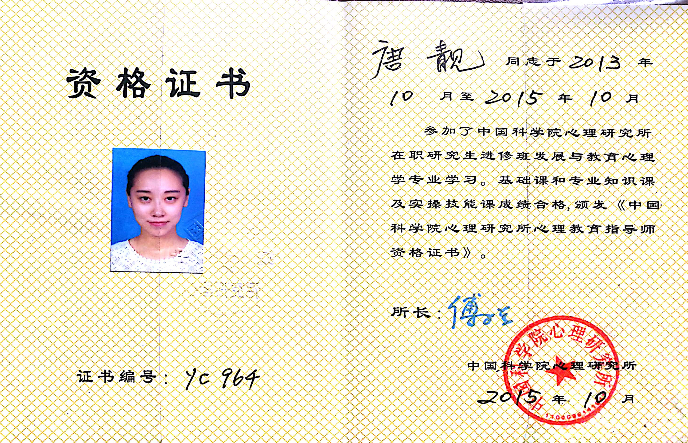 资格证书
证书编号：YC 964
唐靓 同志于 2013 年
10 月至 2015 年 10 月
参加了中国科学院心理研究所
在职研究生进修班发展与教育心理
学专业学习。基础课和专业知识课
及实操技能课成绩合格,颁发《中国
科学院心理研究所心理教育指导师
资格证书》。
所长：
中国科学院心理研究所
2015 年 10 月
中国科学院心理研究所